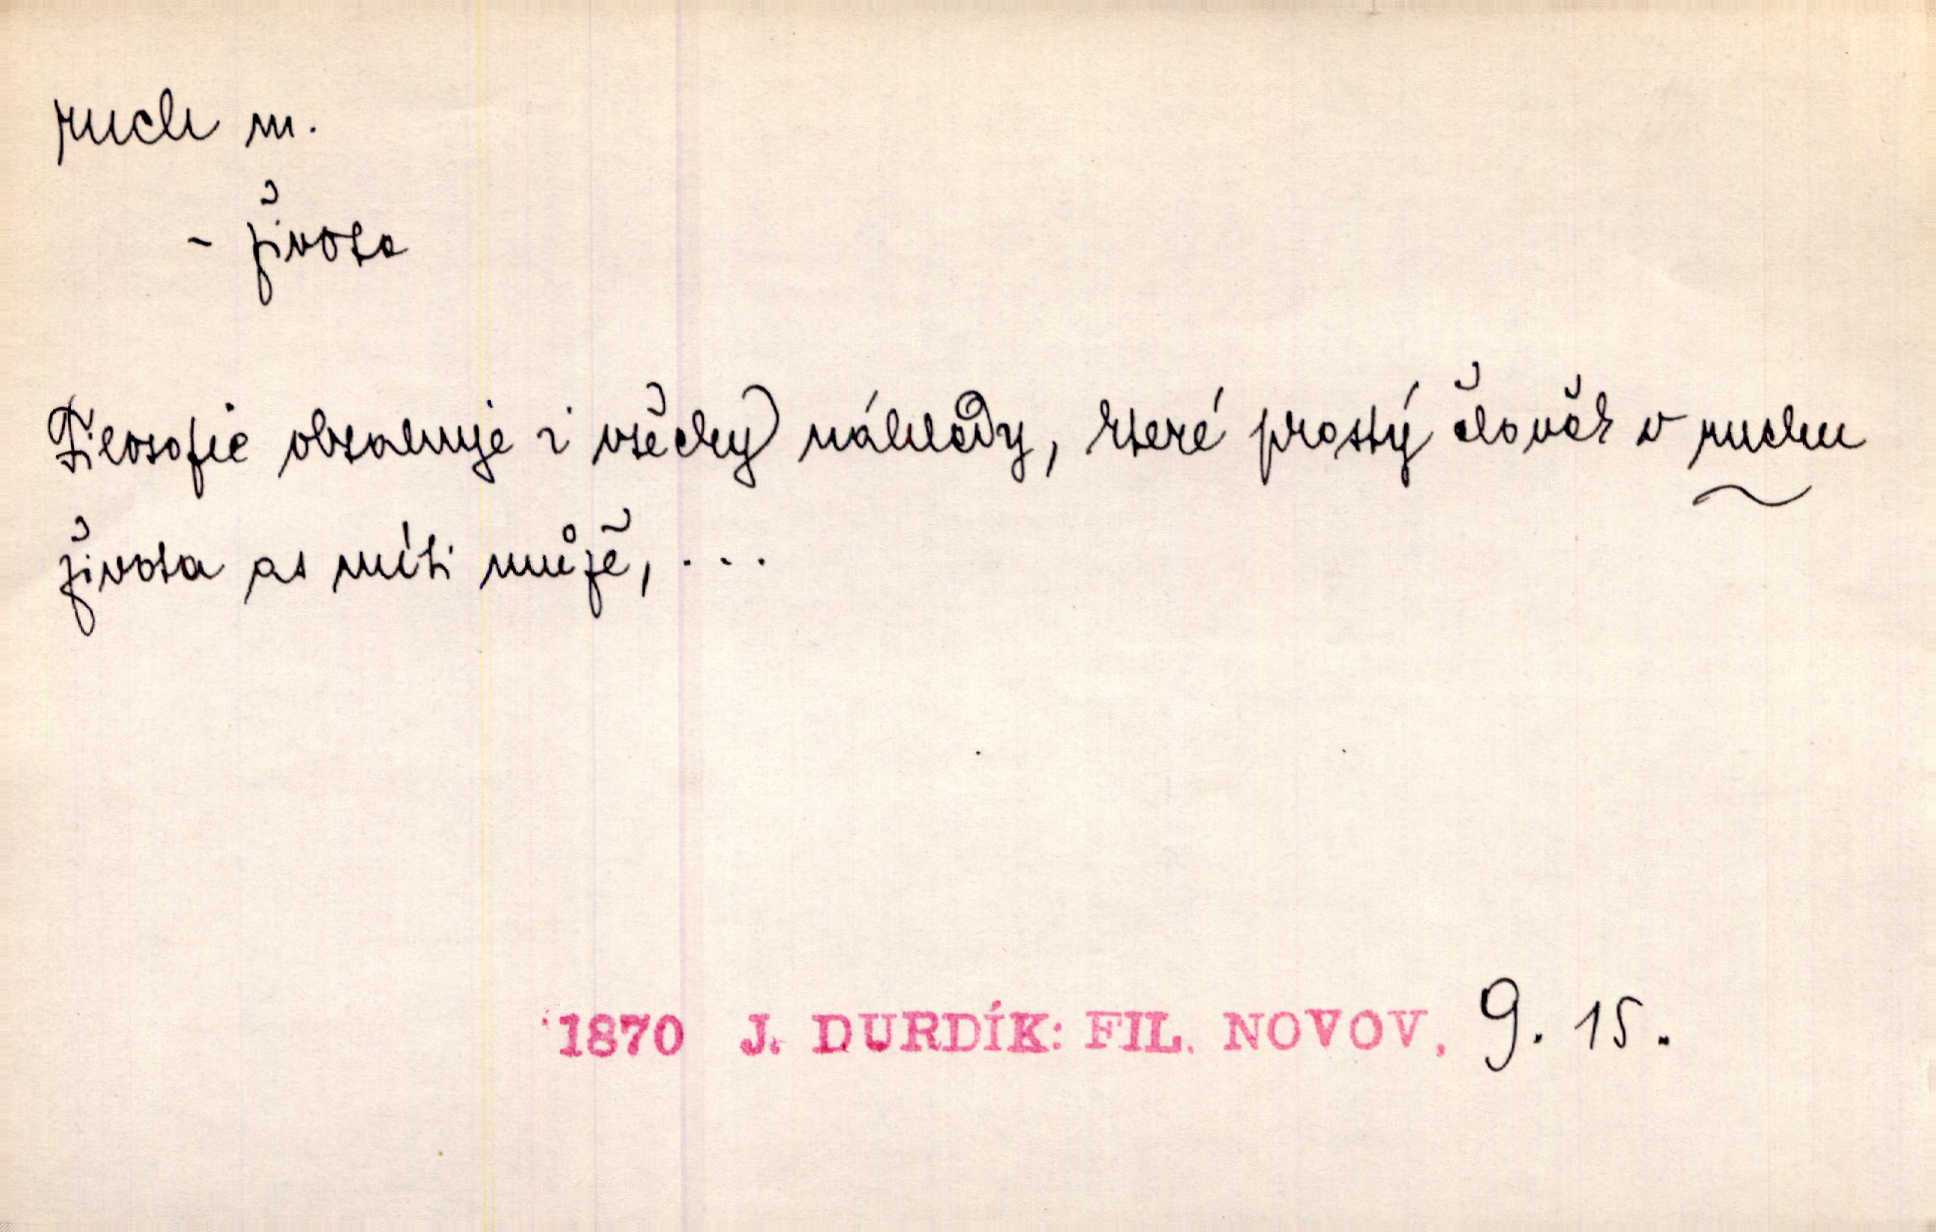 ruch m.
- života
Filosofie obsahuje i všecky náhledy, které prostý člověk v ruchu
života as míti může, ...
1870 J. DURDÍK: FIL. NOVOV. 9. 15.